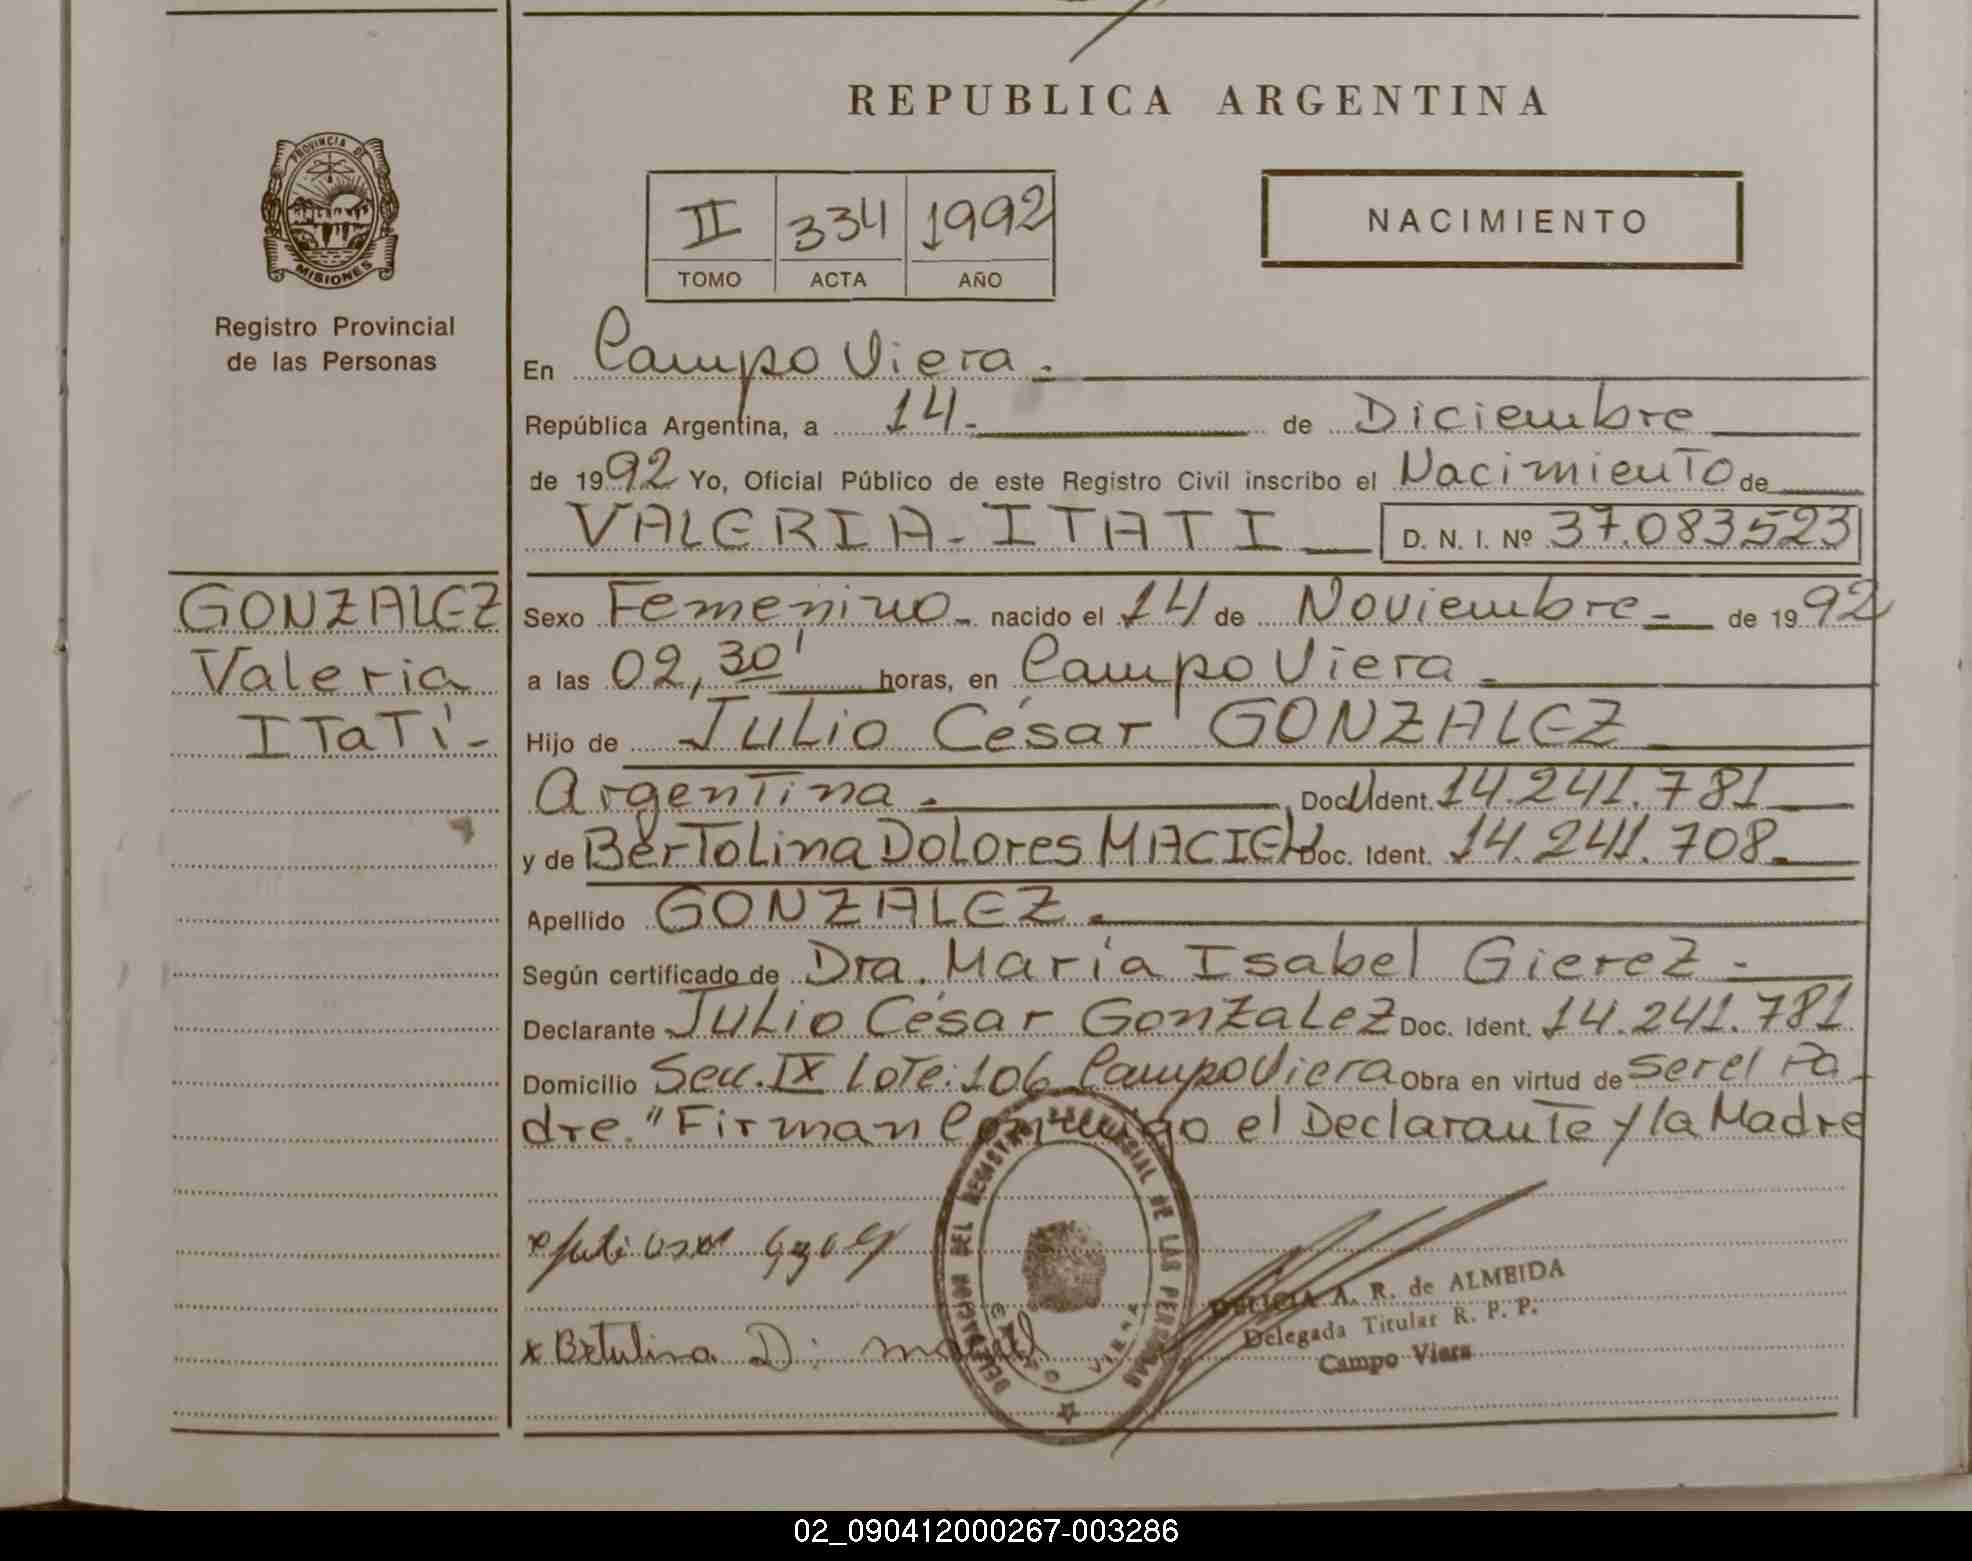 REPUBLICA ARGENTINA
PROVINCIA DE
MISIONES
Registro Provincial
de las Personas
NACIMIENTO
II 334 1992
TOMO ACTA AÑO
En Campo Viera.
República Argentina, a 14- de Diciembre
de 1992 Yo, Oficial Público de este Registro Civil inscribo el Nacimiento de
VALERIA-ITATI D. N. I. Nº 37.083523
GONZALEZ
Valeria
ITaTí-
Sexo Femenino- nacido el 14 de Noviembre- de 1992
a las 02,30' horas, en Campo Viera-
Hijo de Julio César GONZALEZ
Argentina. Doc. Ident. 14.241.781
y de BerTolina Dolores MACIEL Doc. Ident. 14.241.708.
Apellido GONZALEZ.
Según certificado de Dra. María Isabel Gierez-
Declarante Julio César Gonzalez Doc. Ident. 14.241.781
Domicilio Secc. IX Lote: 106 Campo Viera Obra en virtud de ser el Pa-
dre." Firman Conmigo el Declarante y la Madre
DELEGACION DEL REGISTRO PROVINCIAL DE LAS PERSONAS
CAMPO VIERA
x Betulina D:
A. R. de ALMEIDA
Delegada Titular R. P. P.
Campo Viera
02_090412000267-003286